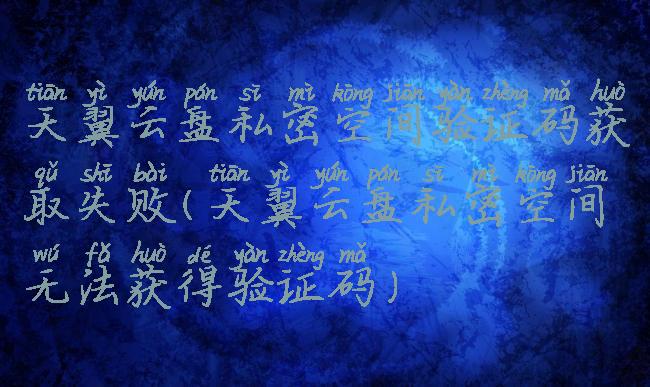 tiān yì yún pán sī mì kōng jiān yàn zhèng mǎ huò
天翼云盘私密空间验证码获
qǔ shī bài tiān yì yún pán sī mì kōng jiān
取失败(天翼云盘私密空间
wú fǎ huò dé yàn zhèng mǎ
无法获得验证码)